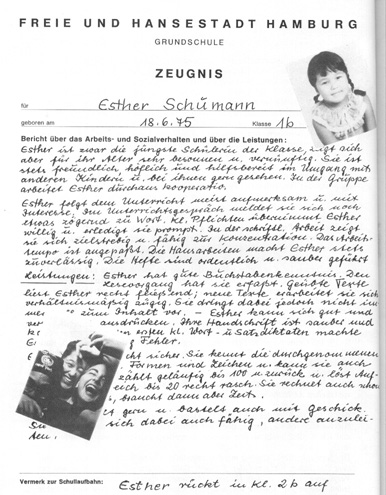 FREIE UND HANSESTADT HAMBURG
GRUNDSCHULE
ZEUGNIS
für Esther Schümann
geboren am 18.6.75 Klasse 1b
Bericht über das Arbeits- und Sozialverhalten und über die Leistungen:
Esther ist zwar die jüngste Schülerin der Klasse, zeigt sich
aber für ihr Alter sehr besonnen u. vernünftig. Sie ist
stets freundlich, höflich und hilfsbereit im Umgang mit
anderen Kindern u. bei ihnen gern gesehen. In der Gruppe
arbeitet Esther durchaus kooperativ.
Esther folgt dem Unterricht meist aufmerksam u. mit
Interesse. Im Unterrichtsgespräch meldet sie sich noch
etwas zögernd zu Wort. Kl. Pflichten übernimmt Esther
willig u. erledigt sie prompt. In der schriftl. Arbeit zeigt
sie sich zielstrebig u. fähig zur Konzentration. Das Arbeits-
tempo ist angepaßt. Die Hausarbeiten macht Esther stets
zuverlässig. Die Hefte sind ordentlich u. sauber geführt
Leistungen: Esther hat gute Buchstabenkenntnis. Den
Lesevorgang hat sie erfaßt. Geübte Texte
liest Esther recht fließend; neue Texte erarbeitet sie sich
verhältnismäßig zügig. Sie dringt dabei jedoch nicht im-
mer zum Inhalt vor. - Esther kann sich gut und
ver ausdrücken. Ihre Handschrift ist sauber und
ersten kl. Wort- u. Satzdiktaten machte
Fehler.
ht sicher. Sie kennt die durchgenommenen
Formen und Zeichen u. kann sie auch
zählt geläufig bis 100 u. zurück u. löst Auf-
eich bis 20 recht rasch. Sie rechnet auch schon
, braucht dann aber Zeit.
t gern u. bastelt auch mit Geschick.
sich dabei auch fähig, andere anzulei-
ten.
Vermerk zur Schullaufbahn: Esther rückt in Kl. 2b auf